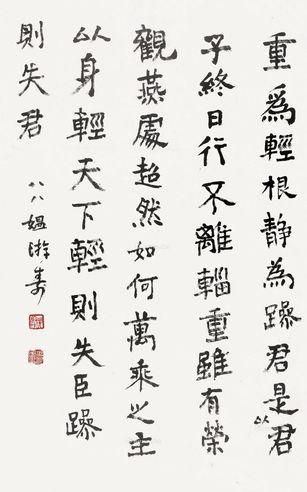 重為輕根静為躁君是以君
子終日行不離輜重雖有榮
觀燕處超然如何萬乘之主
以身輕天下輕則失臣躁
則失君
八八媼游壽